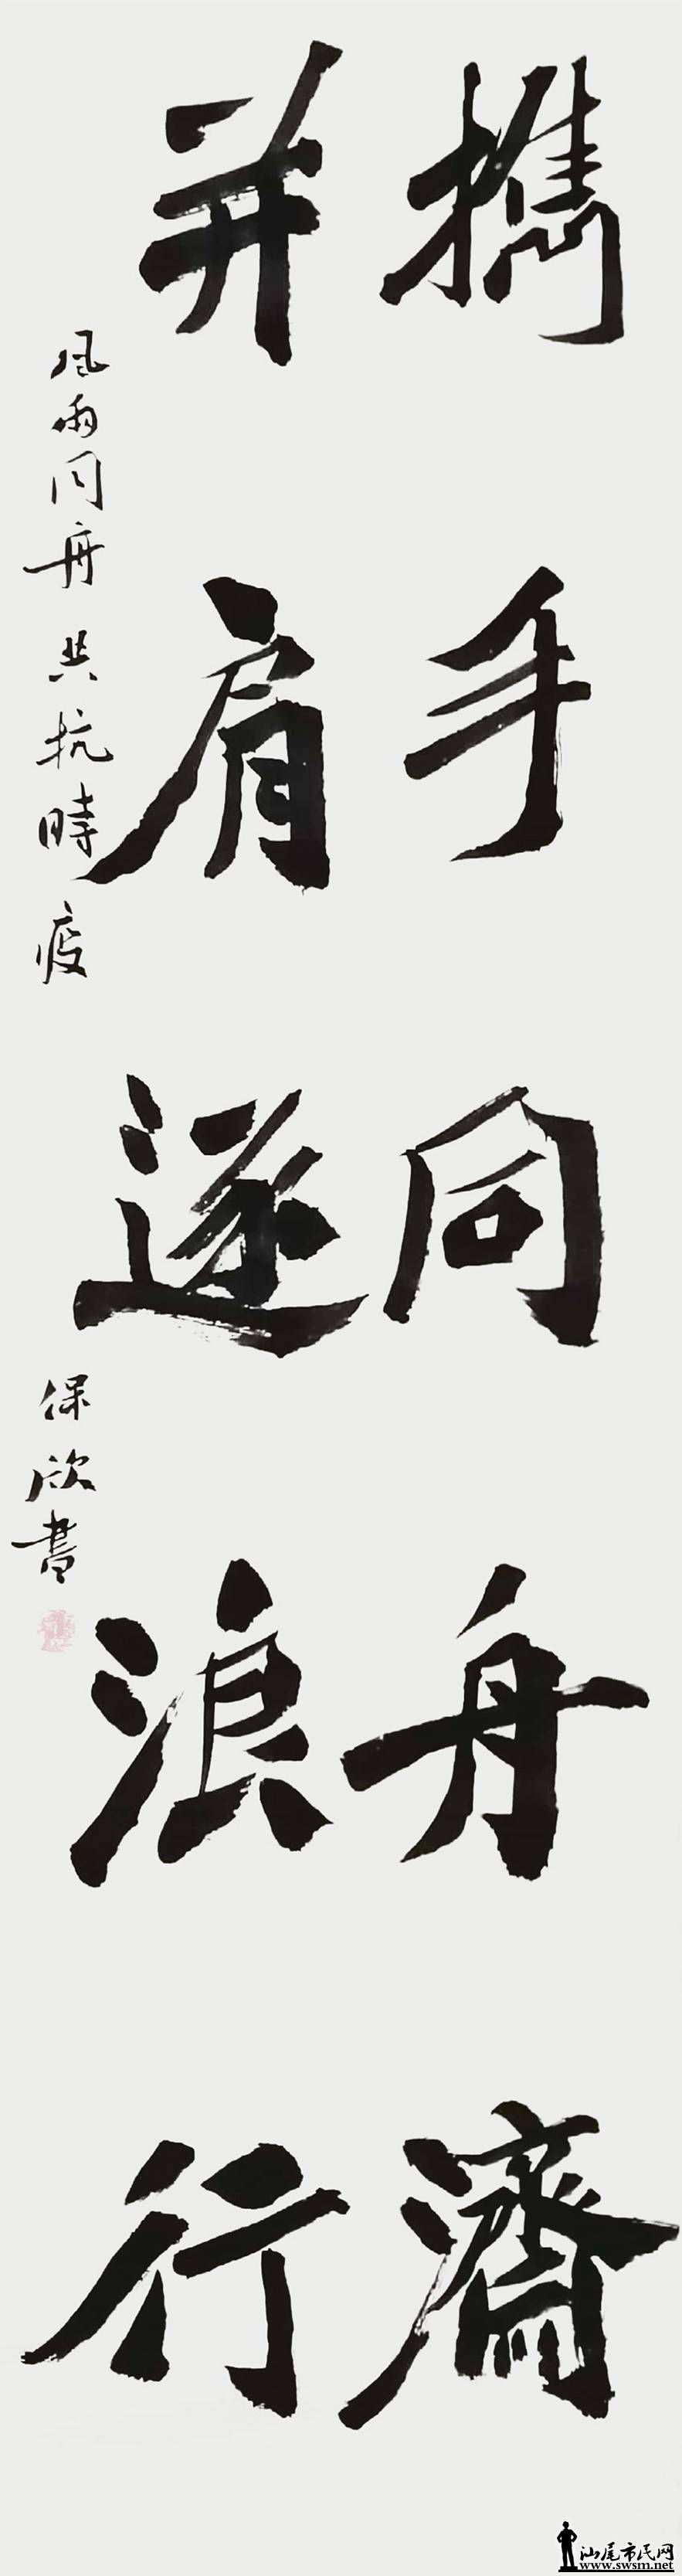 攜手同舟濟
并肩逐浪行
風雨同舟 共抗時疫
保欣書
汕尾市民网
www.swsm.net